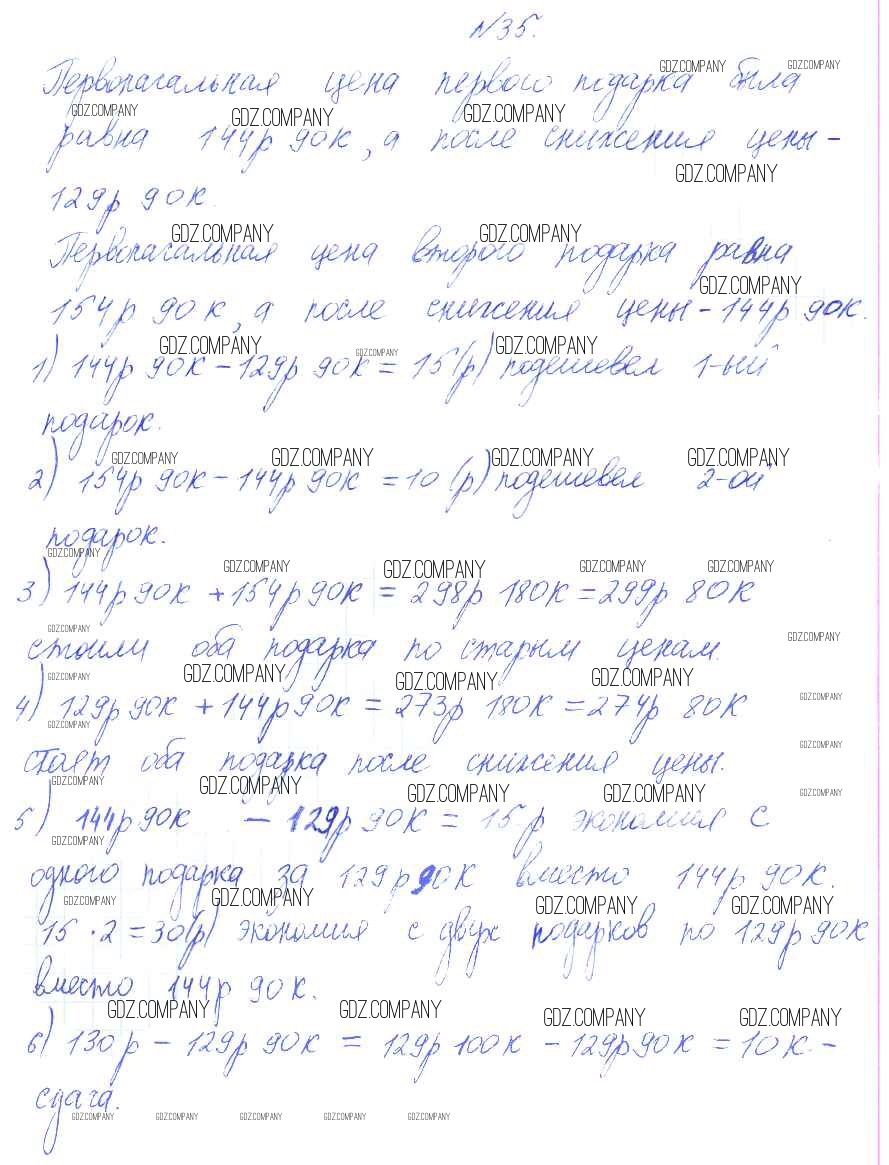 №35.
Первоначальная цена первого подарка была
равна 144р 90к, а после снижения цены -
129р 90к.
Первоначальная цена второго подарка равна
154р 90к, а после снижения цены - 144р 90к.
1) 144р 90к - 129р 90к = 15 (р) подешевел 1-ый
подарок.
2) 154р 90к - 144р 90к = 10 (р) подешевел 2-ой
подарок.
3) 144р 90к + 154р 90к = 298р 180к = 299р 80к
стоили оба подарка по старым ценам.
4) 129р 90к + 144р 90к = 273р 180к = 274р 80к
стоят оба подарка после снижения цены.
5) 144р 90к - 129р 90к = 15 р экономия с
одного подарка за 129р 90к вместо 144р 90к.
15 · 2 = 30 (р) экономия с двух подарков по 129р 90к
вместо 144р 90к.
6) 130р - 129р 90к = 129р 100к - 129р 90к = 10к -
сдача.
GDZ.COMPANY